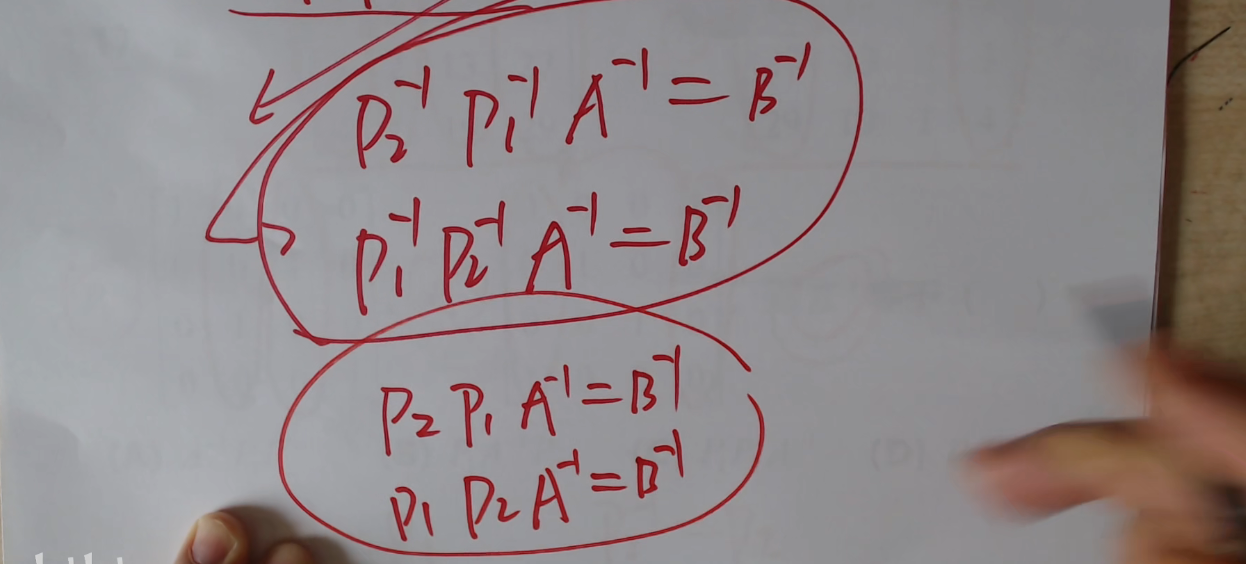 P₂⁻¹ P₁⁻¹ A⁻¹ = B⁻¹
P₁⁻¹ P₂⁻¹ A⁻¹ = B⁻¹
P₂ P₁ A⁻¹ = B⁻¹
P₁ P₂ A⁻¹ = B⁻¹